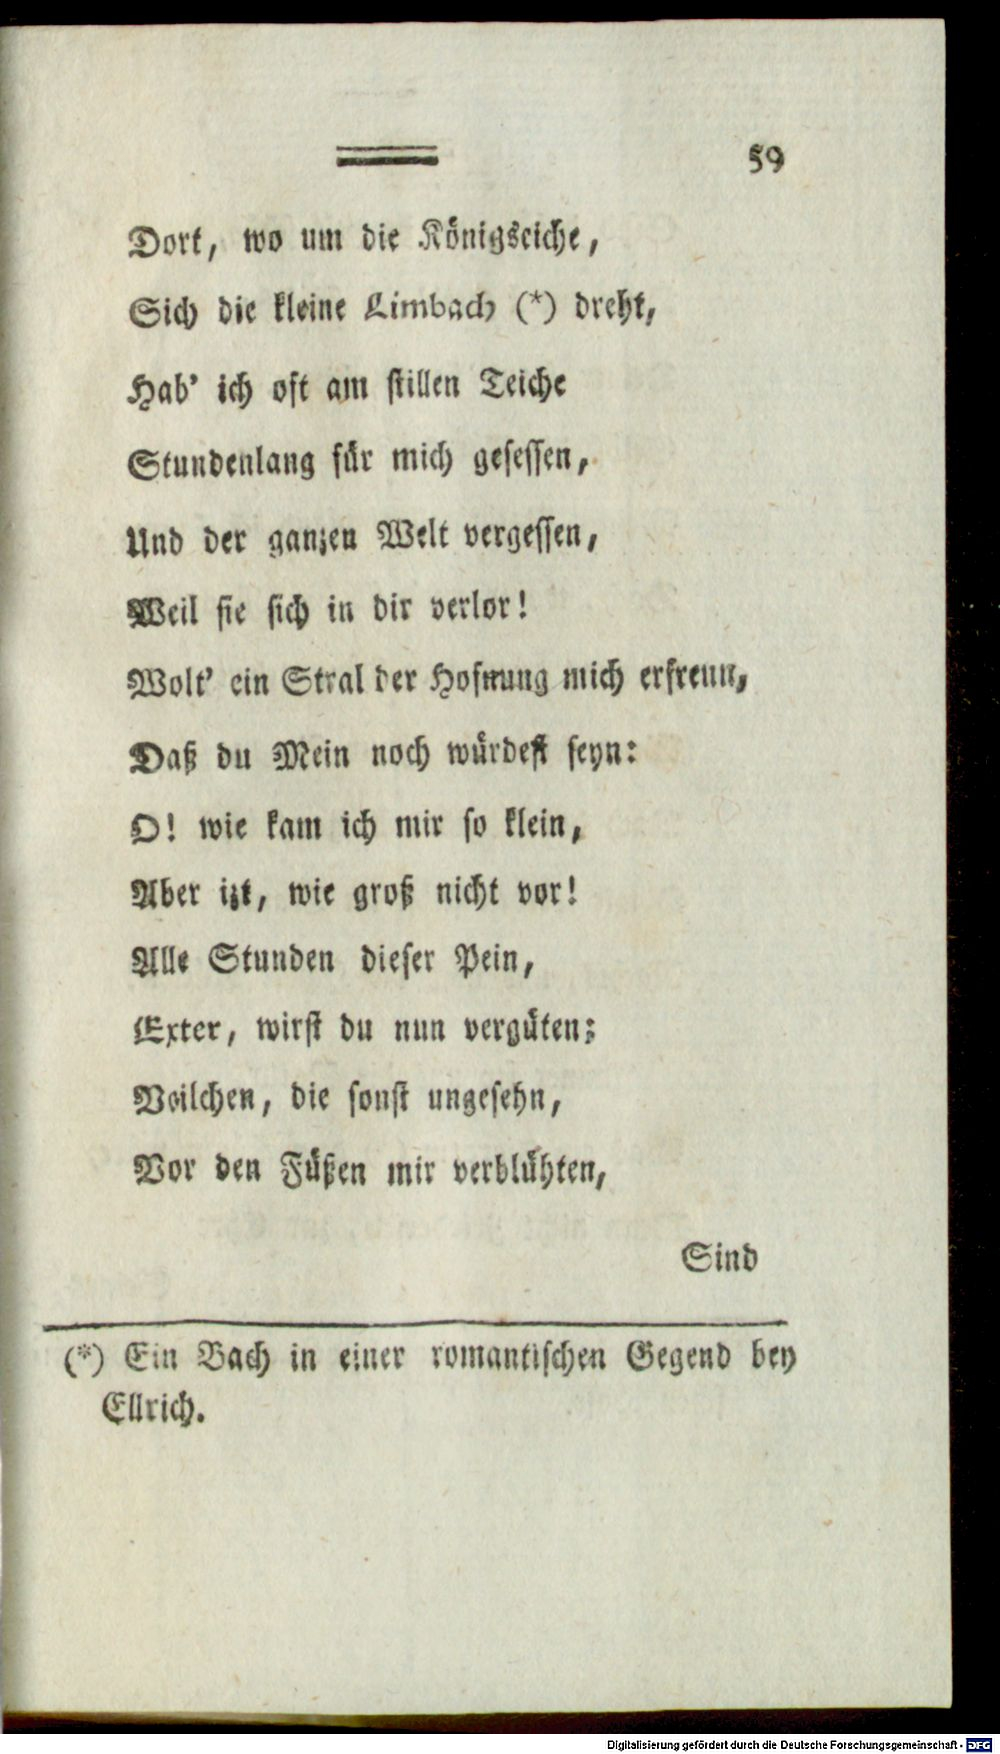 59
Dort, wo um die Königseiche,
Sich die kleine Limbach (*) dreht,
Hab' ich oft am stillen Teiche
Stundenlang für mich gesessen,
Und der ganzen Welt vergessen,
Weil sie sich in dir verlor!
Wolt' ein Stral der Hofnung mich erfreun,
Daß du Mein noch würdest seyn:
O! wie kam ich mir so klein,
Aber izt, wie groß nicht vor!
Alle Stunden dieser Pein,
Exter, wirst du nun vergüten:
Veilchen, die sonst ungesehn,
Vor den Füßen mir verblühten,
Sind
(*) Ein Bach in einer romantischen Gegend bey
Ellrich.
Digitalisierung gefördert durch die Deutsche Forschungsgemeinschaft - DFG